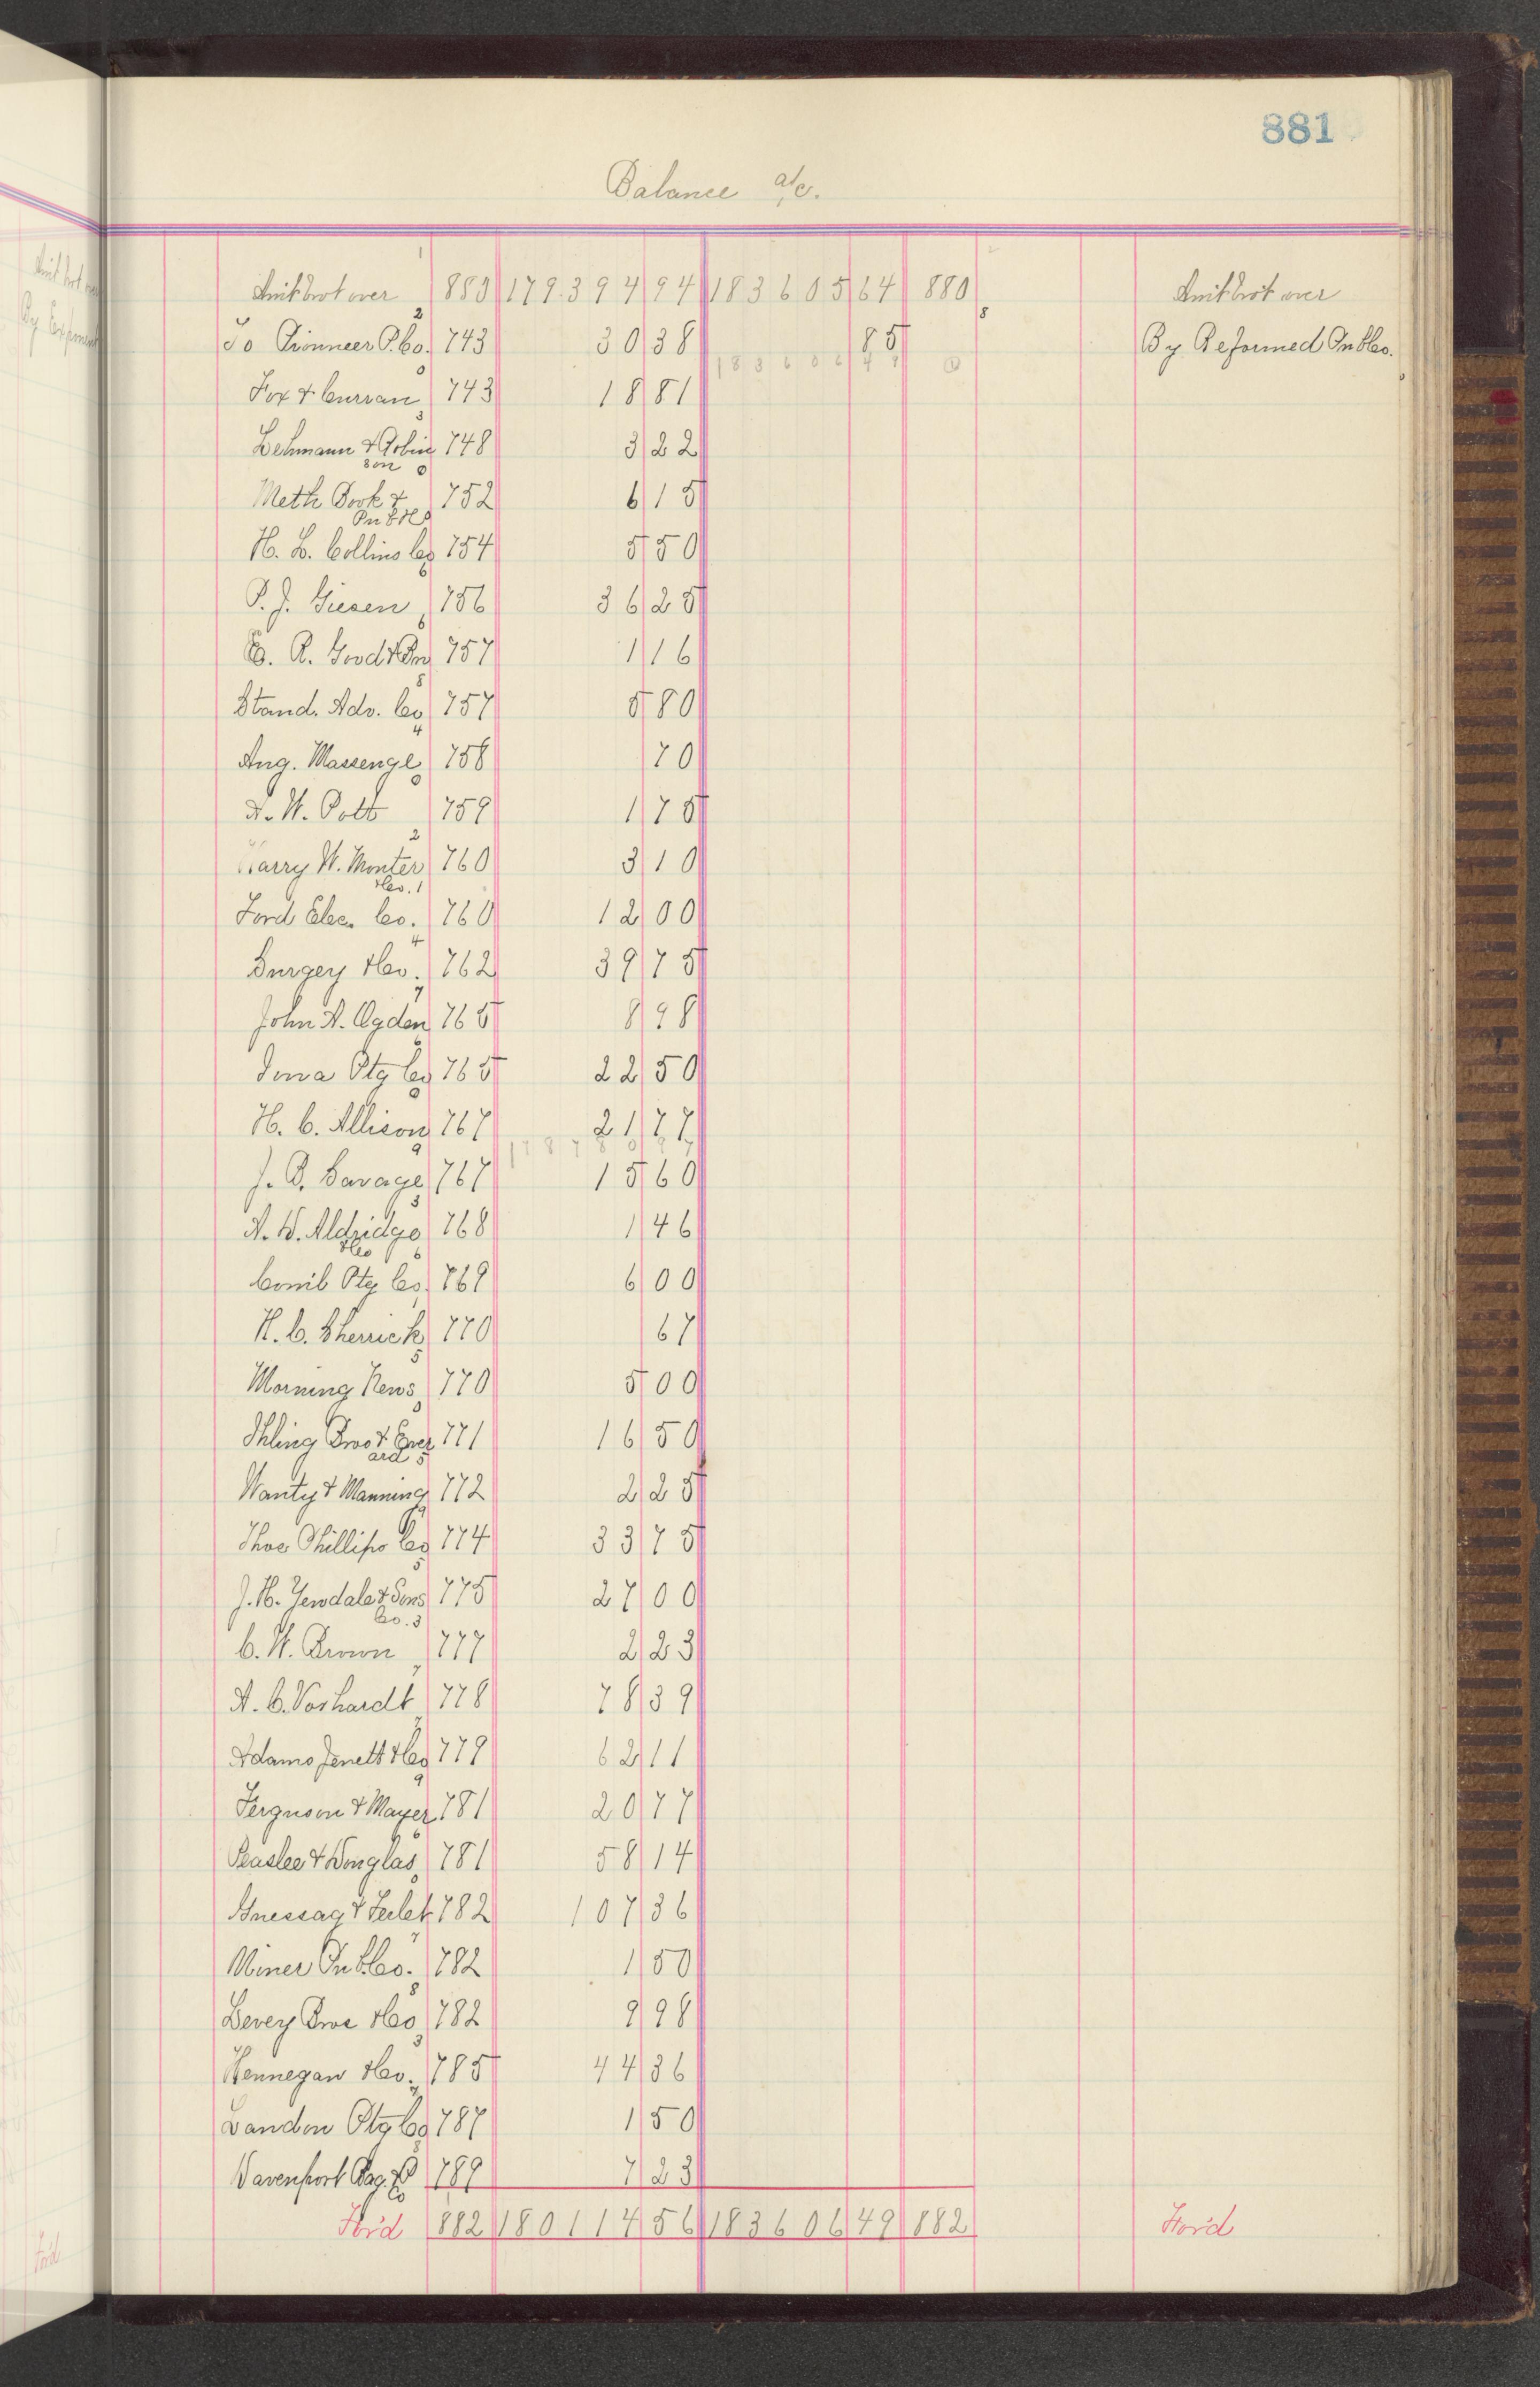 881
Balance a/c.
Amt brot over 880 179394 94 183605 64 880 Amt brot over
To Pionneer P. Co. 743 30 38 85 By Reformed Pub Co.
183606 49
Fox & Curran 743 18 81
Lehmann & Robin 748 3 22
son
Meth Book & 752 6 15
Pub H
H. L. Collins Co 754 5 50
P. J. Giesen 756 36 25
E. R. Good & Bro 757 1 16
Stand. Adv. Co 757 5 80
Aug. Massengl 758 70
A. W. Pott 759 1 75
Harry W. Monter 760 3 10
& Co.
Ford Elec. Co. 760 12 00
Durgey & Co. 762 39 75
John A. Ogden 765 8 98
Iowa Ptg Co 765 22 50
H. C. Allison 767 21 77
J. B. Savage 767 15 60
A. W. Aldridge 768 1 46
& Co
Comb Ptg Co. 769 6 00
H. C. Sherrick 770 67
Morning News 770 5 00
Ihling Bros & Ever 771 16 50
ard
Wanty & Manning 772 2 25
Thos Phillips Co 774 33 75
J. H. Yewdale & Sons 775 27 00
Co.
C. W. Brown 777 2 23
A. C. Voshardt 778 78 39
Adams Jenett & Co 779 62 11
Ferguson & Mayer 781 20 77
Peaslee & Douglas 781 58 14
782 107 36
Miner Pub Co. 782 1 50
Levey Bros & Co 782 9 98
Hennegan & Co. 785 44 36
Landon Ptg Co 787 1 50
Davenport Bag & P 789 7 23
Co
For'd 882 180114 56 183606 49 882 For'd